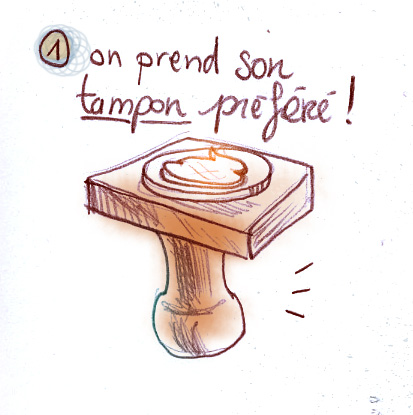 1 on prend son
tampon préféré !